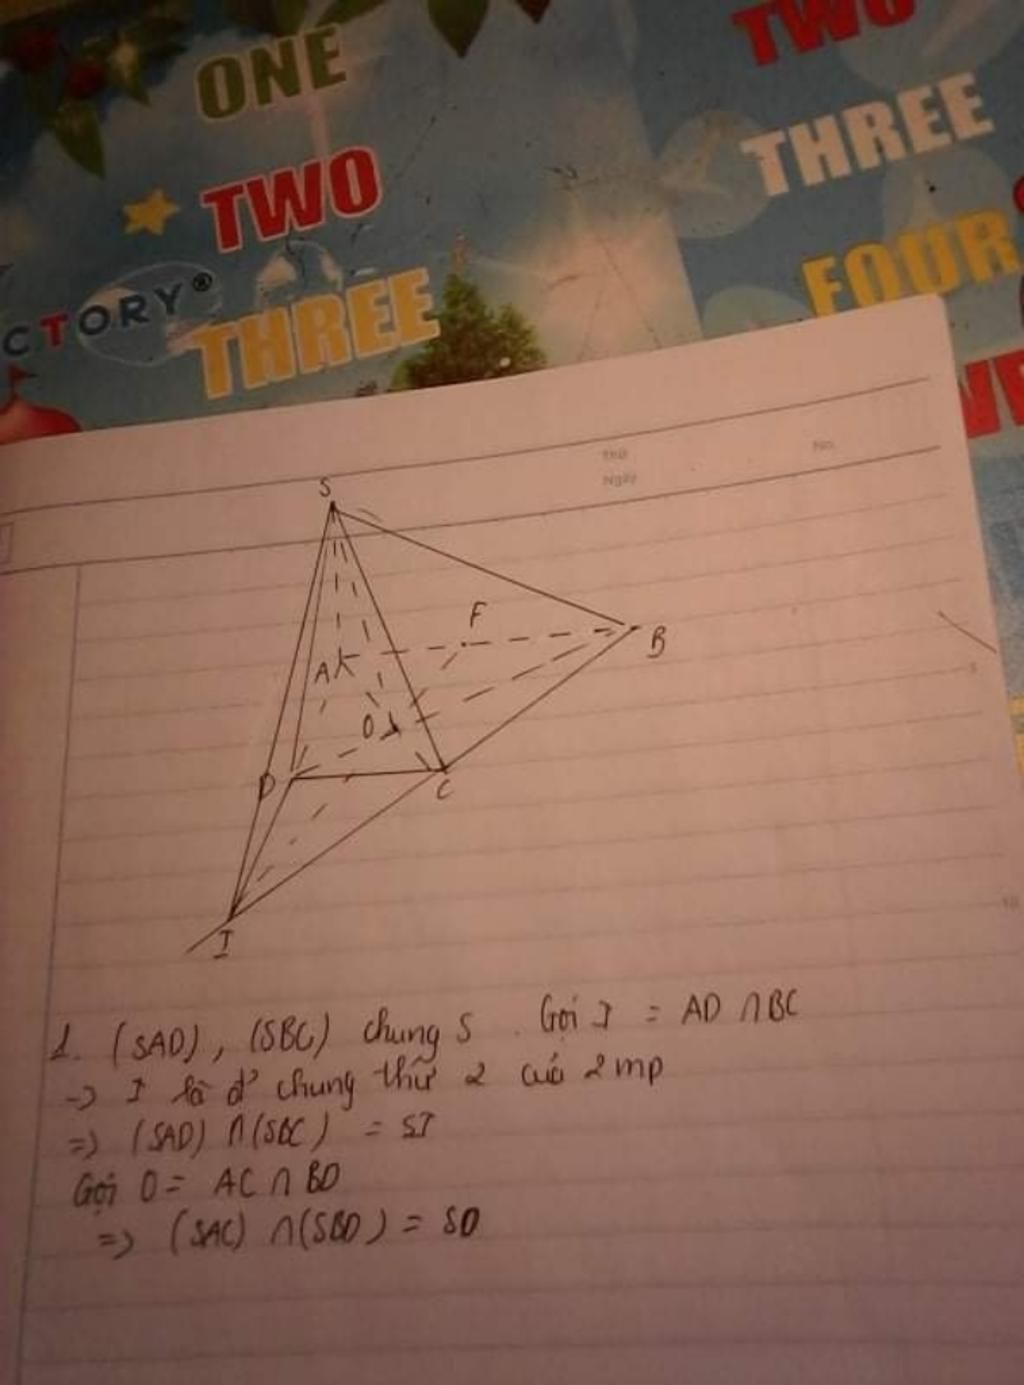 ONE
TWO
TWO
THREE
CTORY®
THREE
FOUR
Thứ
Ngày
No.
S
F
B
A
O
D
C
I
1. (SAD), (SBC) chung S. Gọi I = AD ∩ BC
-> I là đ' chung thứ 2 của 2 mp
=> (SAD) ∩ (SBC) = SI
Gọi O = AC ∩ BD
=> (SAC) ∩ (SBD) = SO